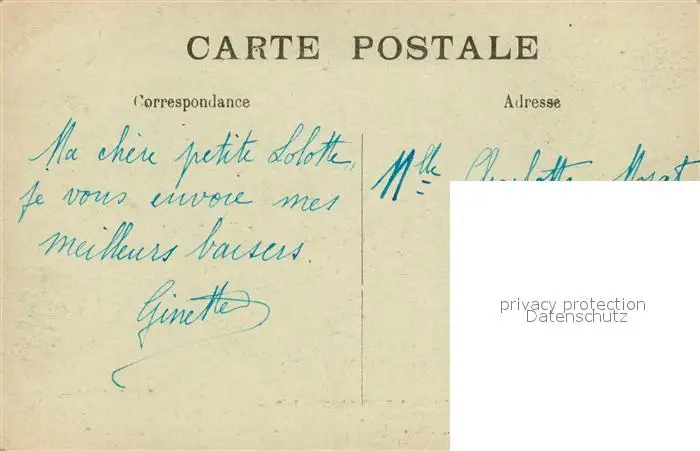 CARTE POSTALE
Correspondance
Adresse
Ma chère petite Lolotte,
Je vous envoie mes
meilleurs baisers
Ginette
Mlle Charlotte
privacy protection
Datenschutz